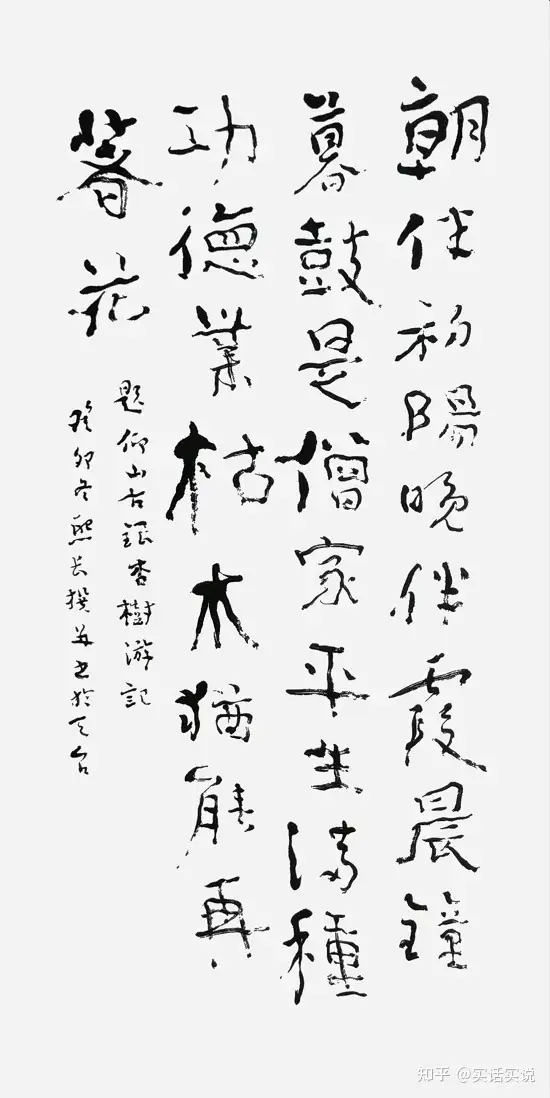 朝伴初陽晚伴霞晨鐘
暮鼓是僧家平生滿種
功德業枯木猶能再
著花
題仰山古銀杏樹游記
癸卯冬熙長撰並书於天台
知乎 @实话实说